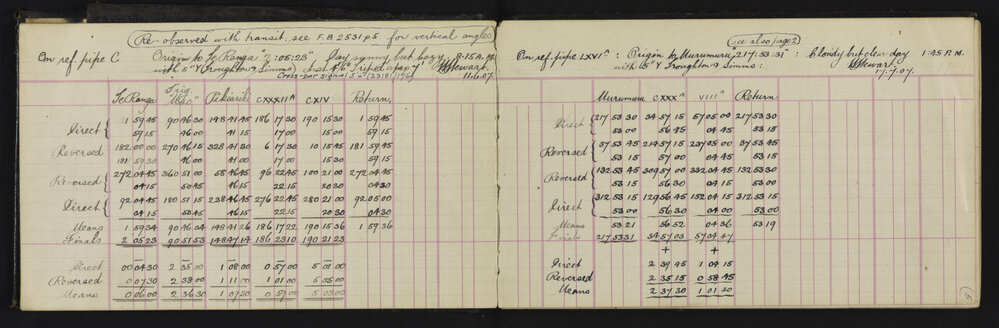 (Re-observed with transit; see F.B. 2531 p5 for vertical angles)
On ref. pipe C Origin to Te Ranga "2°:05:23" Day sunny but hazy 8-15 A.M.
with 5" Y Troughton & Simms
Cross-bar signal 11.6.07.
Te Ranga Trig. "Uko" Pikiariki CXXXII^A CXIV Return
Direct { 1 59 45 90 46 30 148 41 45 186 17 30 190 15 30 1 59 45
59 15 46 00 41 15 17 00 15 00 59 15
Reversed { 182 00 00 270 46 15 328 41 30 6 17 30 10 15 45 181 59 45
181 59 30 46 00 41 00 17 00 15 30 59 15
Reversed { 272 04 45 360 51 00 58 46 45 96 22 45 100 21 00 272 04 45
04 15 50 45 46 15 22 15 20 30 04 30
Direct { 92 04 45 180 51 15 238 46 45 276 22 45 280 21 00 92 05 00
04 15 50 45 46 15 22 15 20 30 04 30
Means 1 59 34 90 46 04 148 41 26 186 17 22 190 15 36 1 59 36
Finals 2 05 23 90 51 53 148 47 14 186 23 10 190 21 23
Direct 00 04 30 2 35 00 1 08 00 0 57 00 5 01 00
Reversed 0 07 30 2 38 00 1 11 00 1 01 00 5 05 00
Means 0 06 00 2 36 30 1 09 30 0 59 00 5 03 00
(see also page 2)
On ref. pipe LXVI^A : Origin to Murumuru "217:53:31" : Cloudy but clear day 1.45 P.M.
with 5" Y Troughton & Simms: 17.7.07.
Murumuru CXXX^A VIII^A Return
Direct { 217 53 30 34 57 15 57 05 00 217 53 30
53 00 56 45 04 45 53 15
Reversed { 37 53 45 214 57 15 237 05 00 37 53 45
53 15 57 00 04 45 53 15
Reversed { 132 53 45 309 57 00 332 04 45 132 53 30
53 15 56 30 04 15 53 00
Direct { 312 53 15 129 56 45 152 04 45 312 53 15
53 00 56 30 04 00 53 00
Means 53 21 56 52 04 36 53 19
Finals 217 53 31 34 57 03 57 04 47
+ +
Direct 2 39 45 1 04 15
Reversed 2 35 15 0 58 45
Means 2 37 30 1 01 30